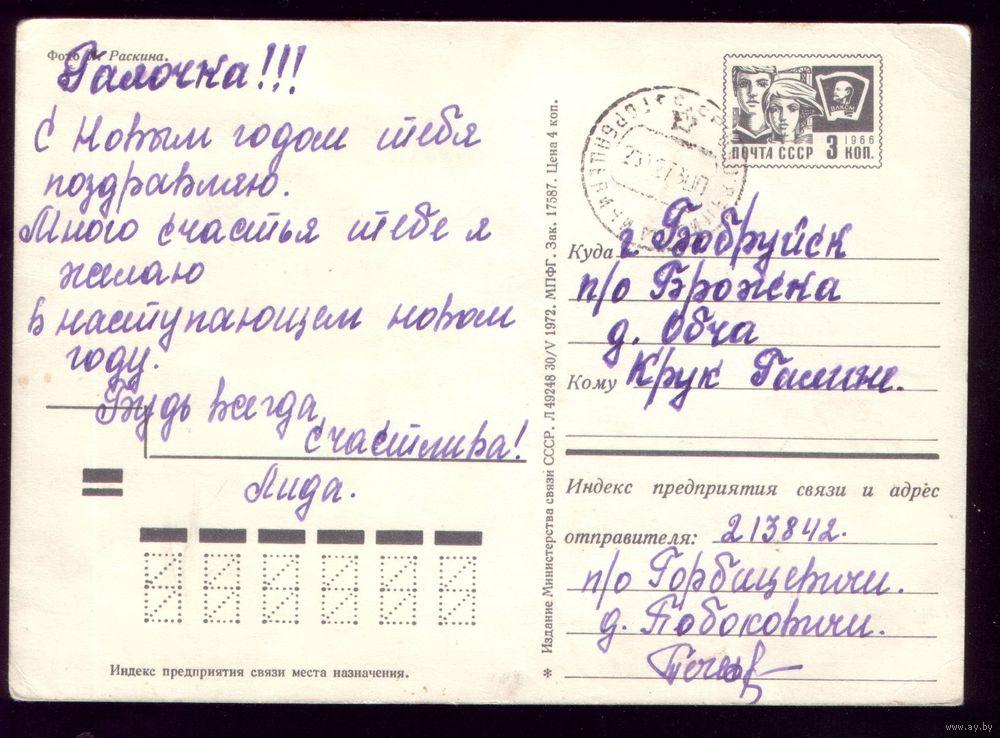 Фото Раскина.
Галочка!!!
С Новым годом тебя
поздравляю.
Много счастья тебе я
желаю
в наступающем новом
году.
Будь всегда
счастлива!
Лида.
Индекс предприятия связи места назначения.
* Издание Министерства связи СССР. Л 49248 30/V 1972. МПФГ. Зак. 17587. Цена 4 коп.
ВЛКСМ
1966
ПОЧТА СССР 3 КОП.
Куда г. Бобруйск
п/о Брожска
д. Обча
Кому Крук Галине.
Индекс предприятия связи и адрес
отправителя: 213842.
п/о Горбацевичи.
д. Бобоковичи.
www.ay.by